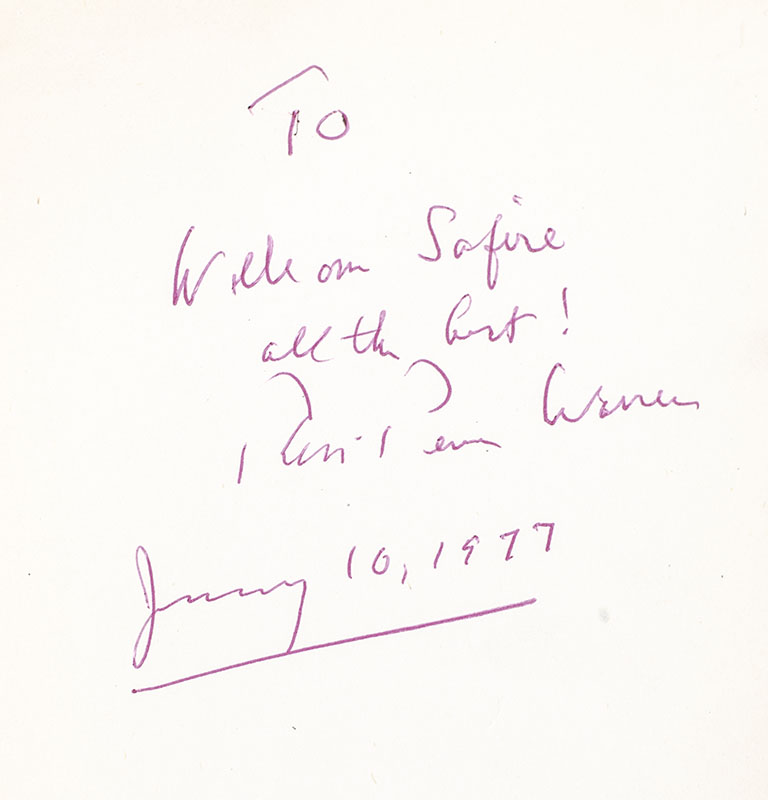 To
William Safire
all the best!
Robert Penn Warren
January 10, 1977